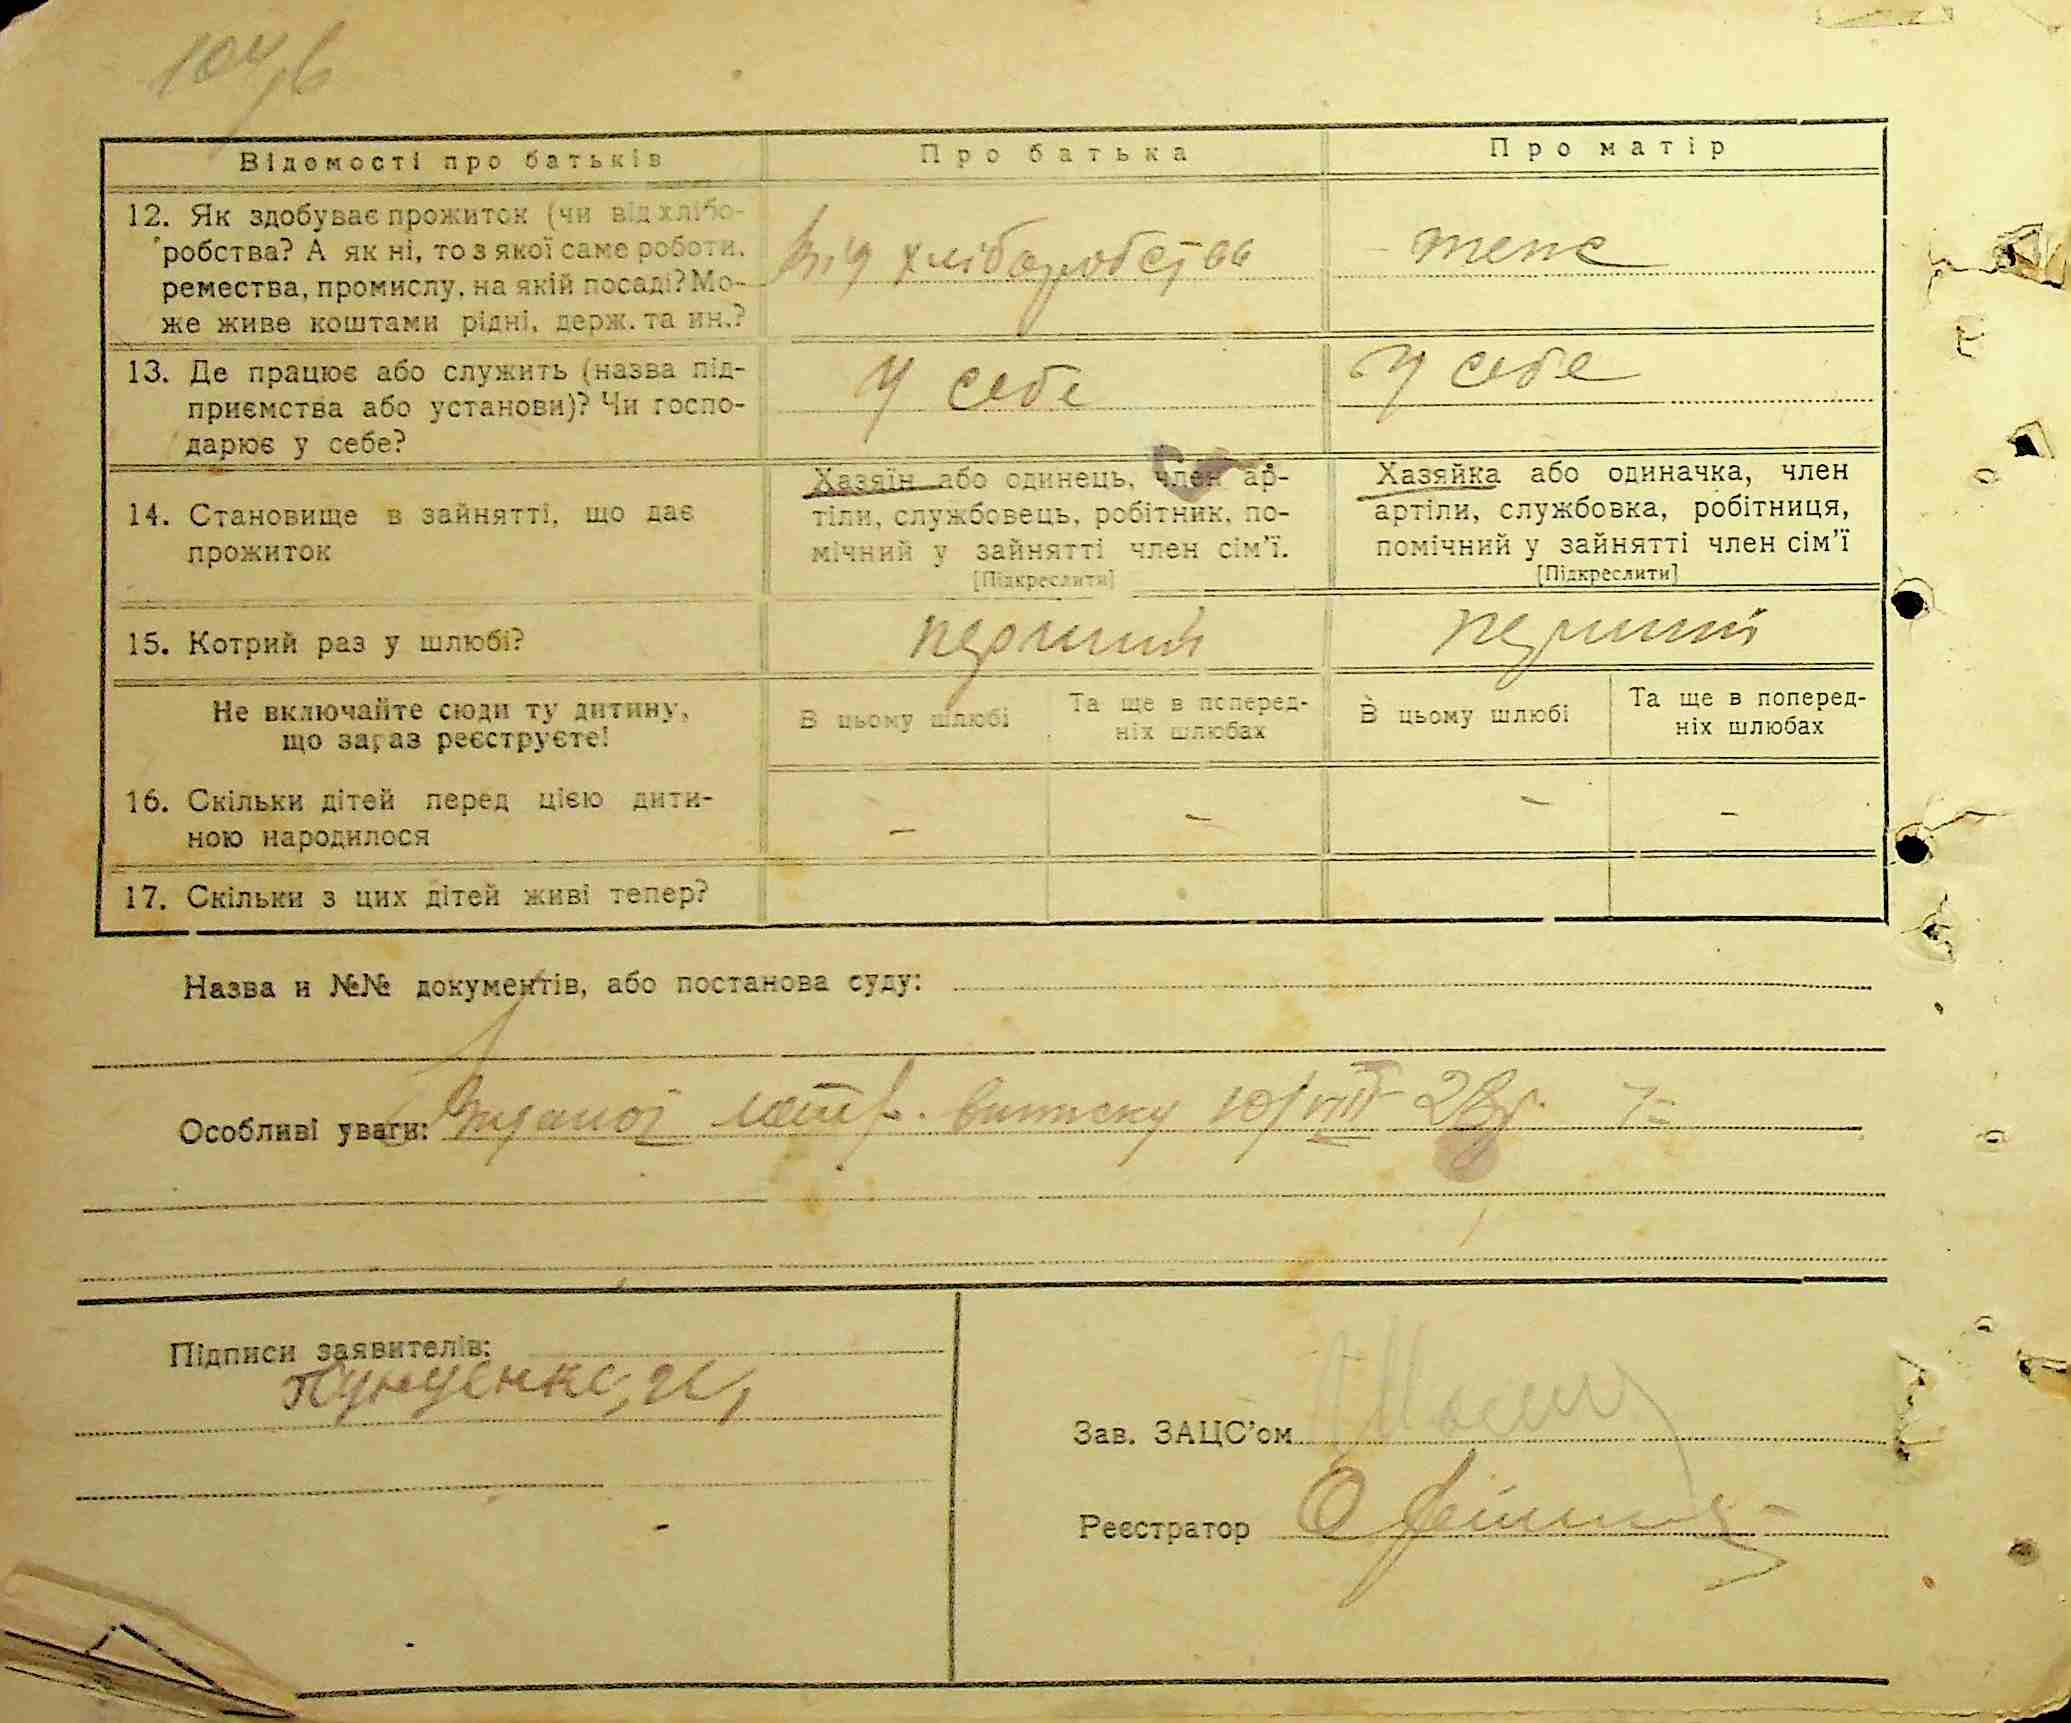 Відомості про батьків
Про батька
Про матір
12. Як здобуває прожиток (чи від хлібо-
робства? А як ні, то з якої саме роботи,
ремества, промислу, на якій посаді? Мо-
же живе коштами рідні, держ. та ин.?
від хліборобства
теж
13. Де працює або служить (назва під-
приємства або установи)? Чи госпо-
дарює у себе?
У себе
У себе
14. Становище в зайнятті, що дає
прожиток
Хазяїн або одинець, член ар-
тіли, службовець, робітник, по-
мічний у зайнятті член сім'ї.
[Підкреслити]
Хазяйка або одиначка, член
артіли, службовка, робітниця,
помічний у зайнятті член сім'ї
[Підкреслити]
15. Котрий раз у шлюбі?
перший
перший
Не включайте сюди ту дитину,
що зараз реєструєте!
В цьому шлюбі
Та ще в поперед-
ніх шлюбах
В цьому шлюбі
Та ще в поперед-
ніх шлюбах
16. Скільки дітей перед цією дити-
ною народилося
– – – –
17. Скільки з цих дітей живі тепер?
Назва и №№ документів, або постанова суду:
Особливі уваги: виписку 10/VIII 28р.
Підписи заявителів:
Зав. ЗАЦС'ом
Реєстратор